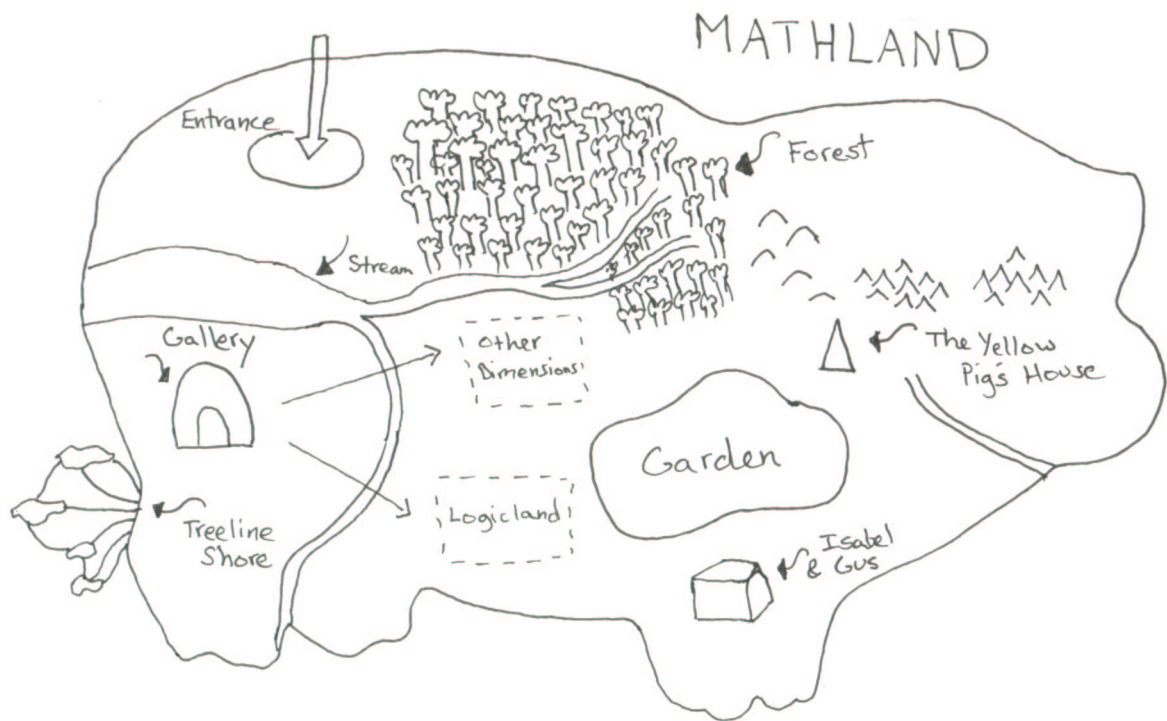 MATHLAND
Entrance
Forest
Stream
Gallery
Other
Dimensions
The Yellow
Pig's House
Garden
Logicland
Treeline
Shore
Isabel
& Gus